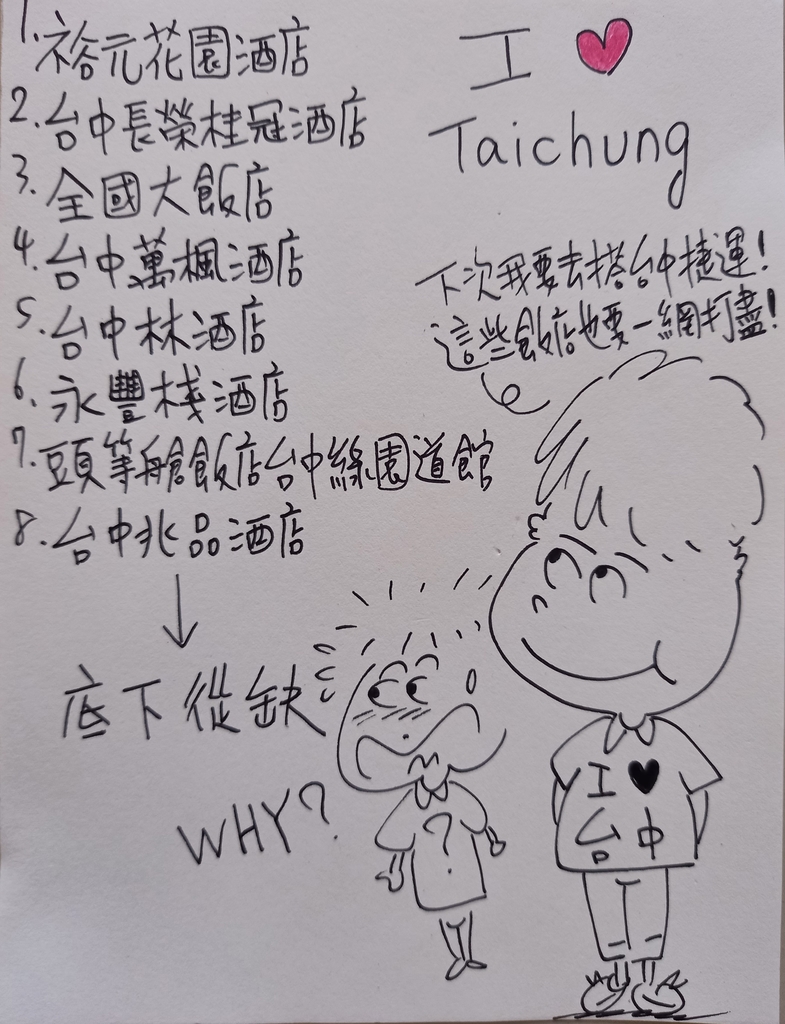 1. 裕元花園酒店
2. 台中長榮桂冠酒店
3. 全國大飯店
4. 台中萬楓酒店
5. 台中林酒店
6. 永豐棧酒店
7. 頭等艙飯店台中綠園道館
8. 台中兆品酒店
底下從缺
WHY?
I ♥
Taichung
下次我要去搭台中捷運!
這些飯店也要一網打盡!
?
I ♥
台中